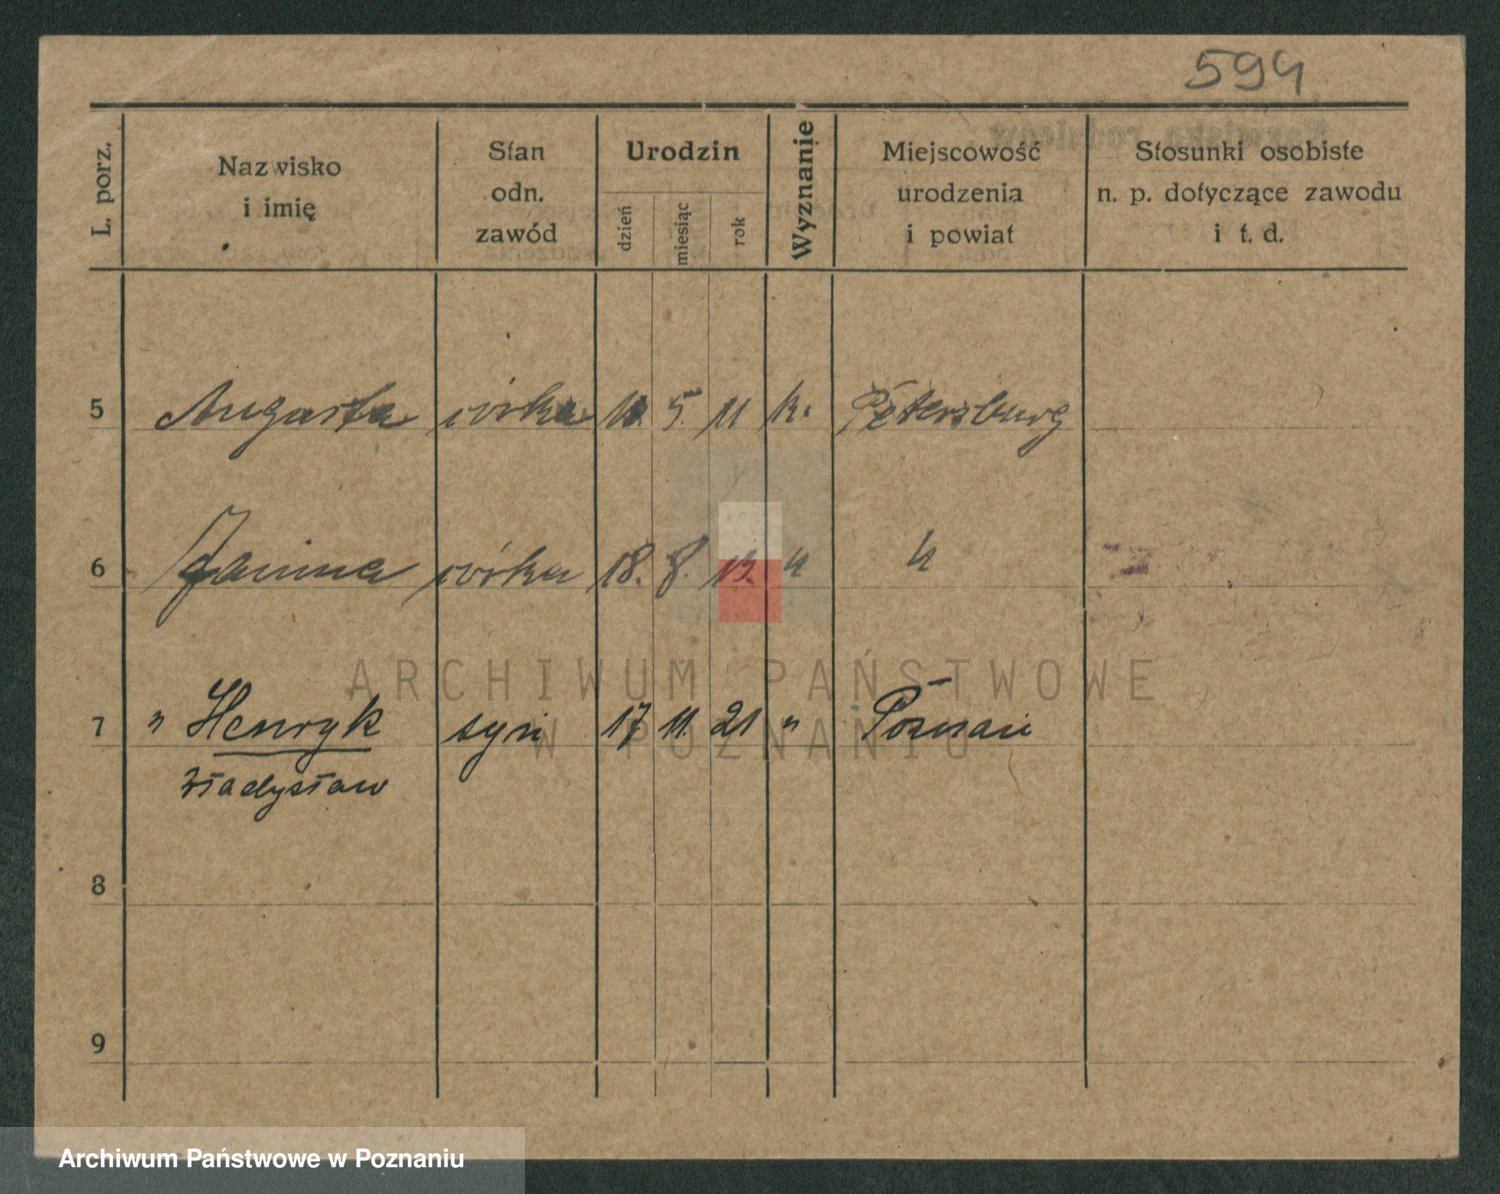 594
L. porz.
Nazwisko
i imię
Stan
odn.
zawód
Urodzin
dzień
miesiąc
rok
Wyznanie
Miejscowość
urodzenia
i powiat
Stosunki osobiste
n. p. dotyczące zawodu
i t. d.
5 Augusta córka 5. 11 k. Petersburg
6 Janina córka 18. 8. 13. " "
7 " Henryk syn 17 11. 21 " Poznań
Władysław
8
9
ARCHIWUM PAŃSTWOWE
W POZNANIU
Archiwum Państwowe w Poznaniu